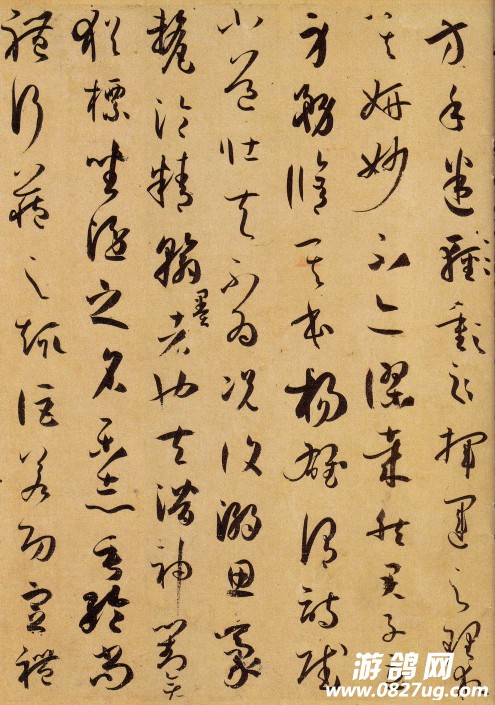 方手迷揮運之理求
其妍妙不亦謬哉然君子立
身務脩其本楊雄謂詩賦
小道壯夫不為況復溺思豪
氂淪精翰墨者也夫潛神對弈
猶標坐隱之名樂志垂綸尚
體行藏之趣詎若功宣禮
游鸽网
www.0827ug.com